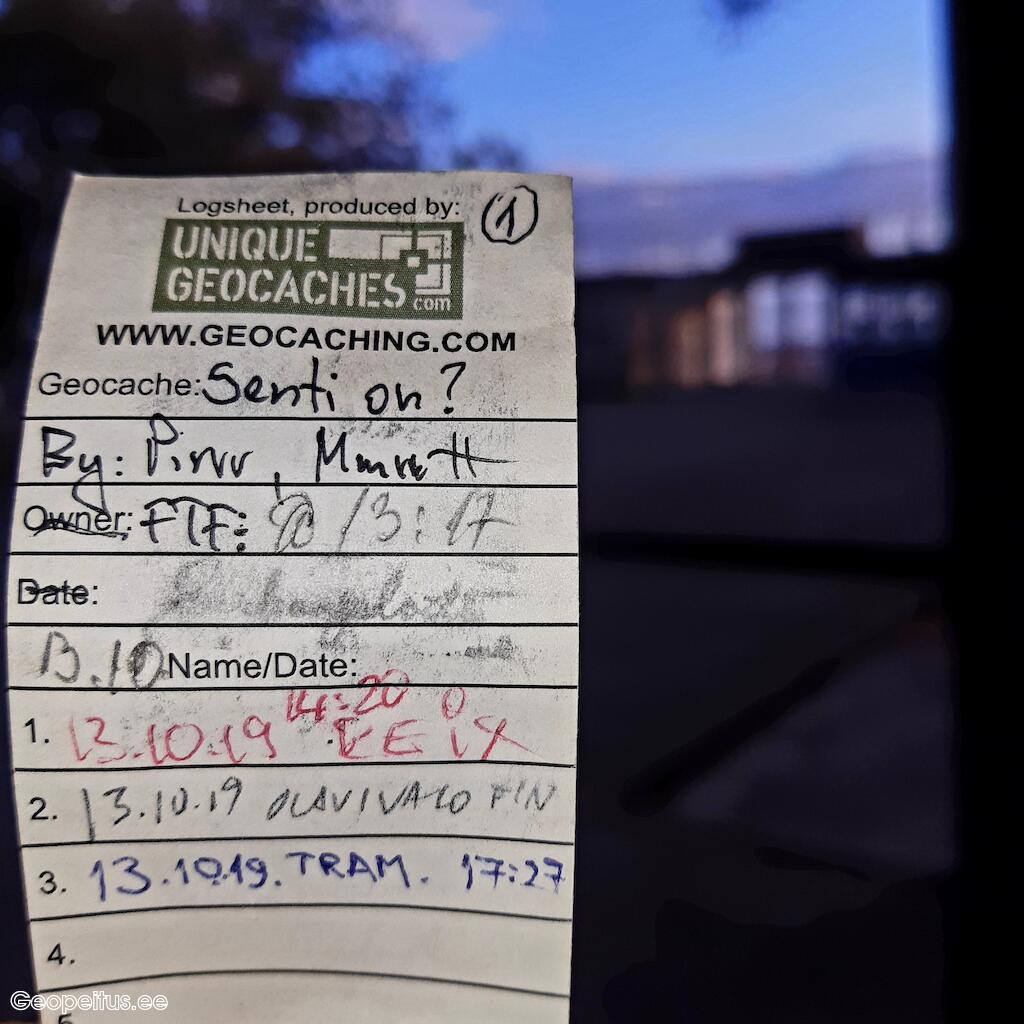 Logsheet, produced by: 1
UNIQUE
GEOCACHES
com
WWW.GEOCACHING.COM
Geocache: Senti on?
By:
Owner: FTF: 13:17
Date:
13.10 Name/Date:
14:20
1. 13.10.19
2. 13.10.19 OLAVIVALO FIN
3. 13.10.19. TRAM. 17:27
4.
5
Geopeitus.ee